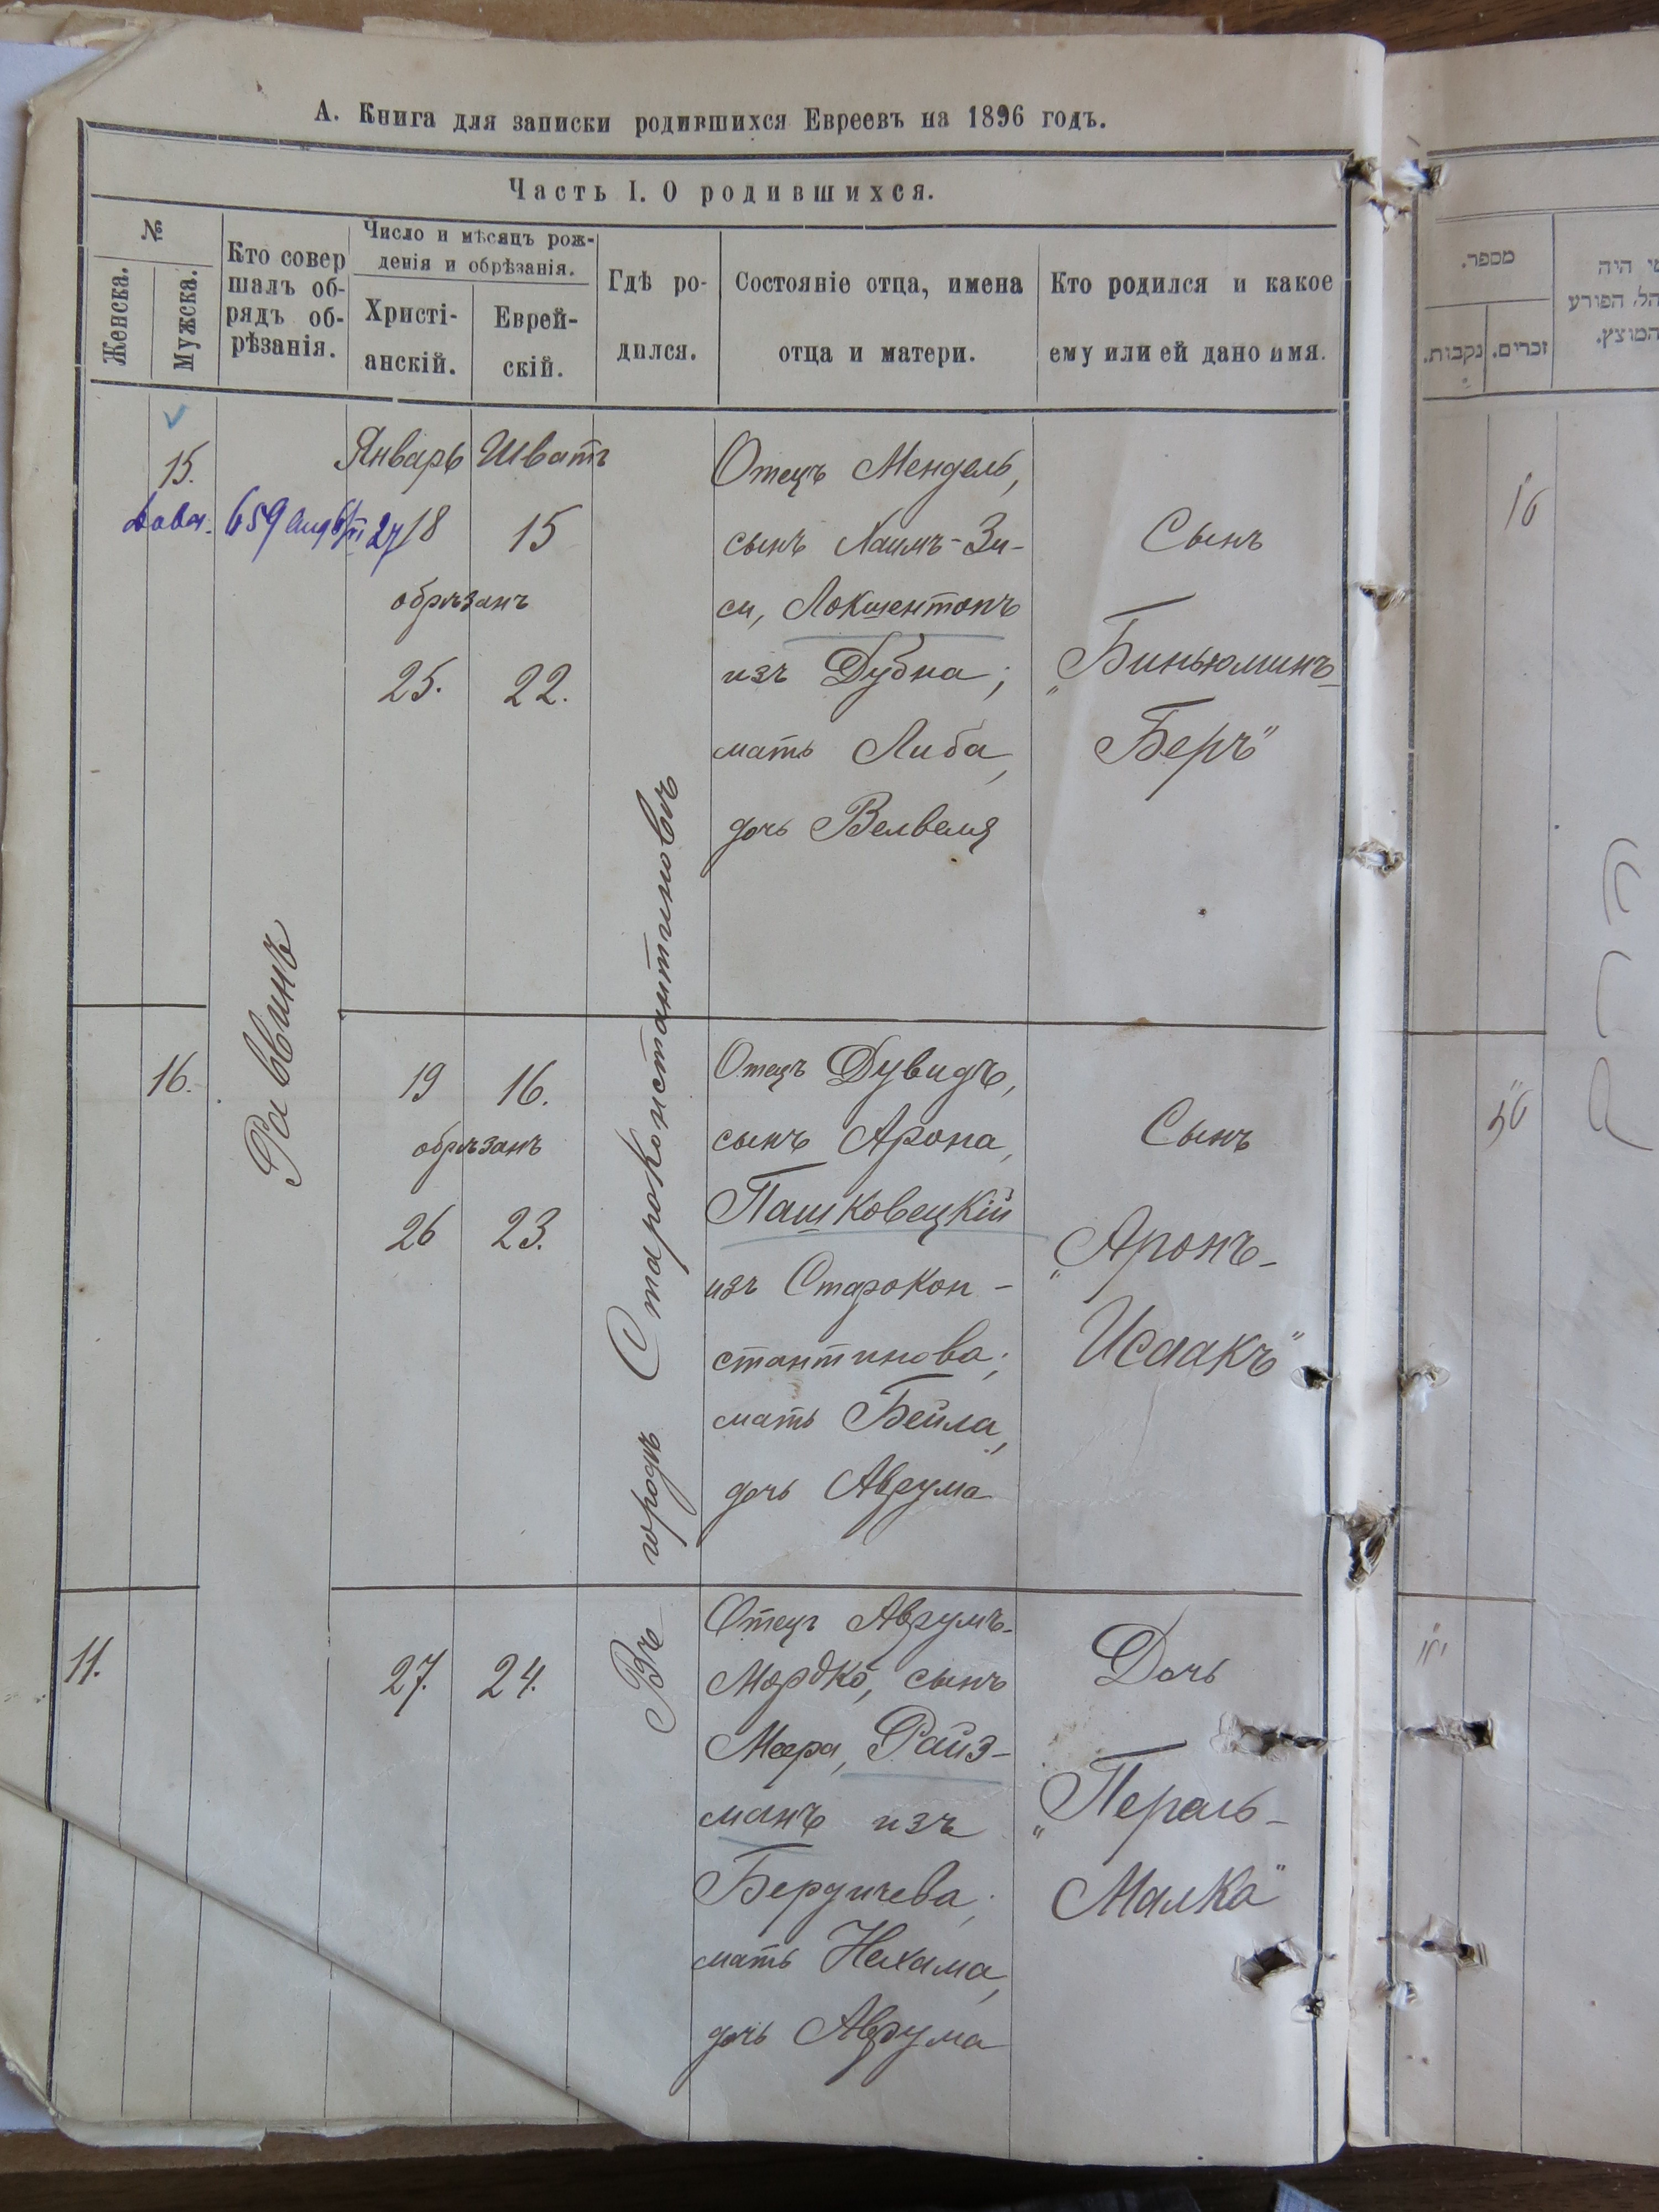 А. Книга для записки родившихся Евреевъ на 1896 годъ.
Часть I. О родившихся.
№
Женска.
Мужска.
Кто совер
шалъ об-
рядъ об-
рѣзанія.
Число и мѣсяцъ рож-
денія и обрѣзанія.
Христі-
анскій.
Еврей-
скій.
Гдѣ ро-
дился.
Состояніе отца, имена
отца и матери.
Кто родился и какое
ему или ей дано имя.
15.
659
27
Раввинъ
Январь Шватъ
18 15
обрѣзанъ
25. 22.
Въ городѣ Староконстантиновѣ
Отецъ Мендель,
сынъ Хаимъ-Зи-
си, Локшентопъ
изъ Дубна;
мать Либа,
дочь Велвеля
Сынъ
„Биньюминъ-
Беръ"
16.
19 16.
обрѣзанъ
26 23.
Отецъ Дувидъ,
сынъ Арона,
Пашковецкій
изъ Старокон-
стантинова;
мать Бейла,
дочь Аврума
Сынъ
„Аронъ-
Исаакъ"
11.
27. 24.
Отецъ Аврумъ-
Мордко, сынъ
Меера, Райз-
манъ изъ
Бердичева;
мать Нехама,
дочь Аврума
Дочь
„Перель-
Малка"
מספר.
זכרים.
נקבות.
מי היה
הפורע
המוצץ.